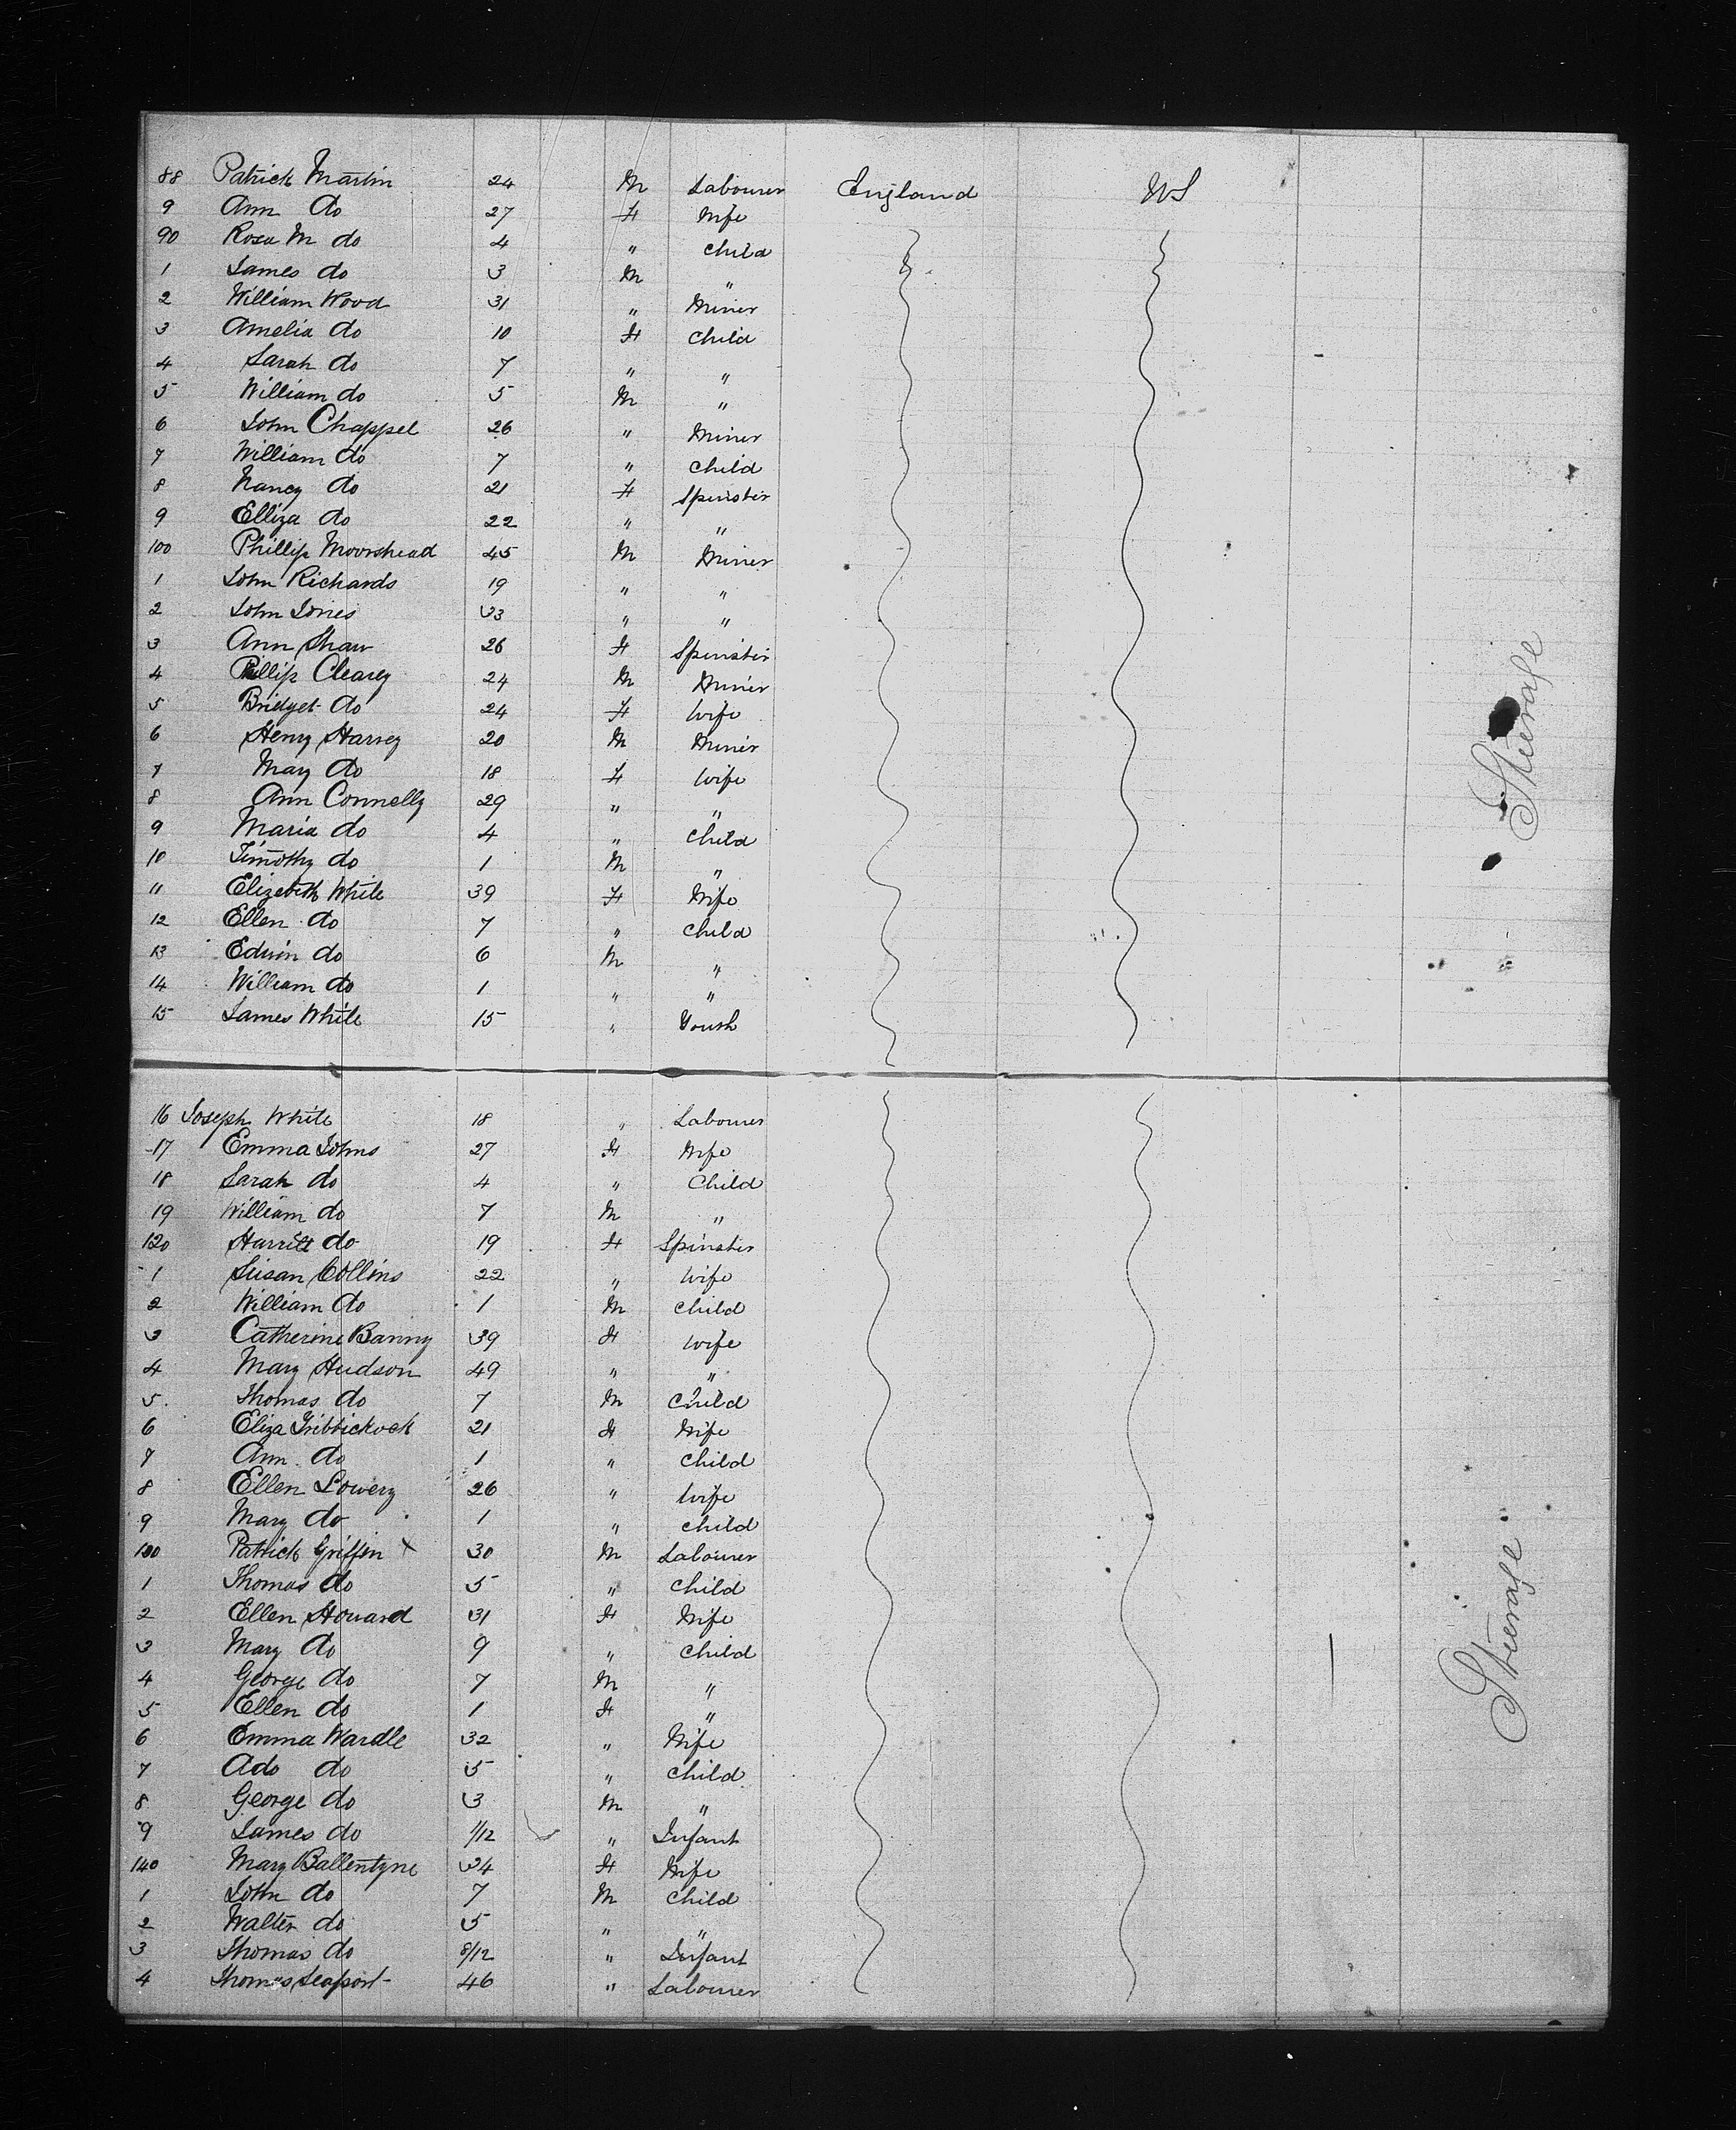 88 Patrick Martin 24 M Labourer England US
9 Ann do 27 F Wife
90 Rosa M do 4 " child
1 James do 3 M "
2 William Wood 31 " Miner
3 Amelia do 10 F child
4 Sarah do 7 " "
5 William do 5 M "
6 John Chappel 26 " Miner
7 William do 7 " child
8 Nancy do 21 F Spinster
9 Elliza do 22 " "
100 Phillip Moorshead 45 M Miner
1 John Richards 19 " "
2 John Jones 33 " "
3 Ann Shaw 26 F Spinster
4 Phillip Clearey 24 M Miner
5 Bridget do 24 F wife
6 Henry Harvey 20 M Miner
7 Mary do 18 F wife
8 Ann Connelly 29 " "
9 Maria do 4 " child
10 Timothy do 1 M "
11 Elizebeth White 39 F Wife
12 Ellen do 7 " child
13 Edwin do 6 M "
14 William do 1 " "
15 James White 15 " Youth
Steerage
16 Joseph White 18 " Labourer
17 Emma Johns 27 F Wife
18 Sarah do 4 " Child
19 William do 7 M "
120 Harriet do 19 F Spinster
1 Susan Collins 22 " wife
2 William do 1 M child
3 Catherine Banny 39 F wife
4 Mary Hudson 49 " "
5 Thomas do 7 M Child
6 Eliza 21 F Wife
7 Ann do 1 " child
8 Ellen Lowery 26 " wife
9 Mary do 1 " child
130 Patrick Griffin x 30 M Labourer
1 Thomas do 5 " child
2 Ellen Howard 31 F Wife
3 Mary do 9 " child
4 George do 7 M "
5 Ellen do 1 F "
6 Emma Wardle 32 " Wife
7 Ado do 5 " child
8 George do 3 M "
9 James do 1/12 " Infant
140 Mary Ballentyne 34 F Wife
1 John do 7 M child
2 Walter do 5 " "
3 Thomas do 8/12 " Infant
4 Thomas 46 " Labourer
Steerage